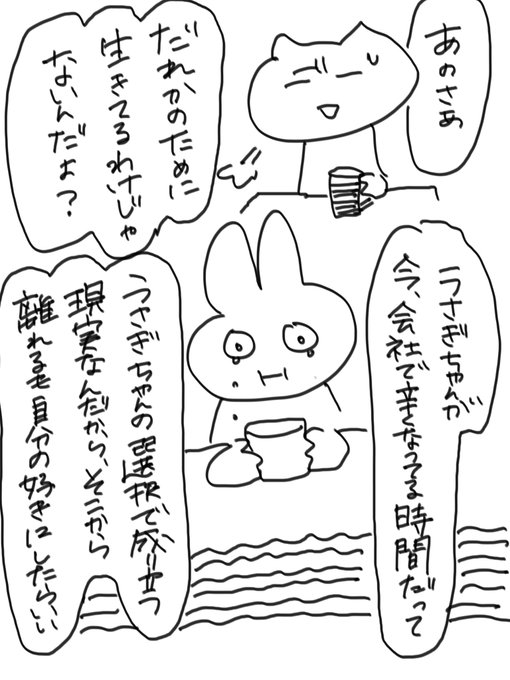 あのさあ
だれかのために
生きてるわけじゃ
ないんだよ？
うさぎちゃんが
今、会社で辛くなってる時間だって
うさぎちゃんの選択で成り立つ
現実なんだから、そこから
離れるも自分の好きにしたらいい